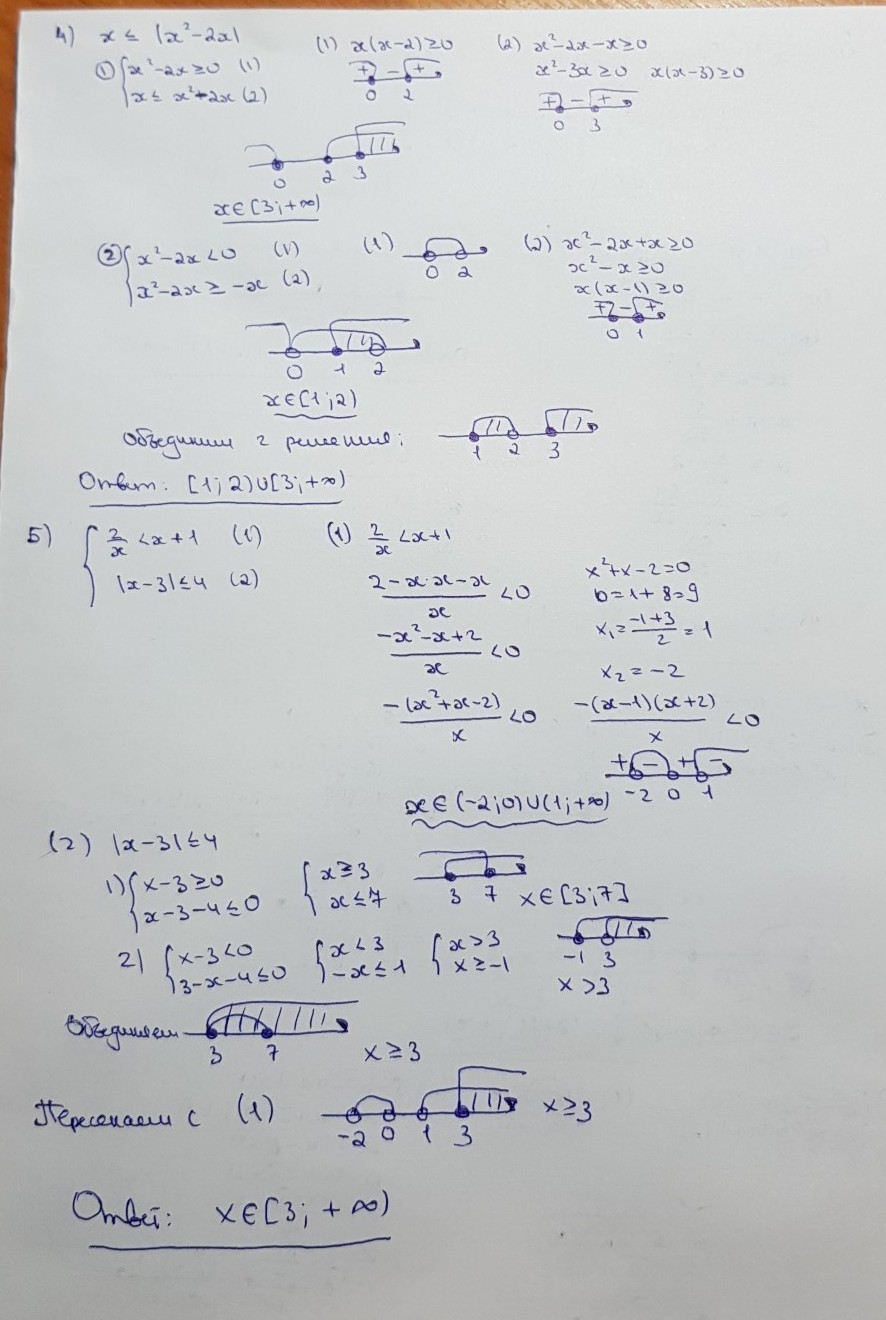 4) x ≤ |x²-2x|
① { x²-2x ≥ 0 (1)
x ≤ x²-2x (2)
(1) x(x-2) ≥ 0
+ - +
0 2
(2) x²-2x-x ≥ 0
x²-3x ≥ 0 x(x-3) ≥ 0
+ - +
0 3
0 2 3
x∈[3;+∞)
② { x²-2x < 0 (1)
x²-2x ≥ -x (2)
(1)
0 2
(2) x²-2x+x ≥ 0
x²-x ≥ 0
x(x-1) ≥ 0
+ - +
0 1
0 1 2
x∈[1;2)
Объединим 2 решения:
1 2 3
Ответ: [1;2)∪[3;+∞)
5) { 2/x < x+1 (1)
|x-3| ≤ 4 (2)
(1) 2/x < x+1
(2-x·x-x)/x < 0
(-x²-x+2)/x < 0
-(x²+x-2)/x < 0
x²+x-2=0
D=1+8=9
x₁=(-1+3)/2=1
x₂=-2
-(x-1)(x+2)/x < 0
+ - + -
-2 0 1
x∈(-2;0)∪(1;+∞)
(2) |x-3| ≤ 4
1) { x-3 ≥ 0
x-3-4 ≤ 0
{ x ≥ 3
x ≤ 7
3 7 x∈[3;7]
2) { x-3 < 0
3-x-4 ≤ 0
{ x < 3
-x ≤ 1
{ x > 3
x ≥ -1
-1 3
x > 3
Объединяем
3 7 x ≥ 3
Пересекаем с (1)
-2 0 1 3 x ≥ 3
Ответ: x∈[3;+∞)